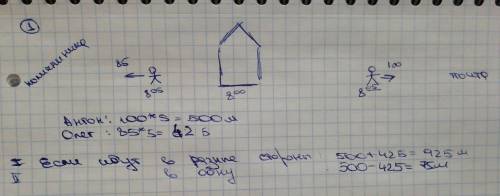 1
поликлиника
85
8 05
8 00
100
8 05
почта
Антон: 100*5 = 500 м
Олег: 85*5 = 425
I Если идут в разные стороны 500+425 = 925 м
II в одну 500-425 = 75м